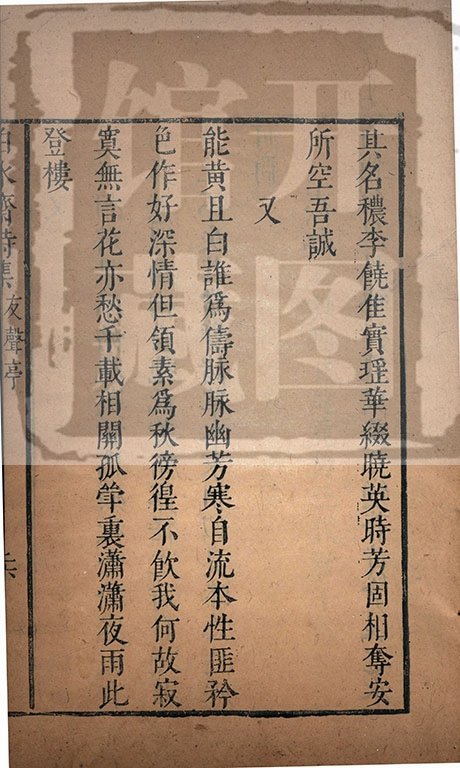 其名穠李饒佳實瑶華綴曉英時芳固相奪安
所空吾誠
又
能黃且白誰爲儔脉脉幽芳寒自流本性匪矜
色作好深情但領素爲秋徬徨不飲我何故寂
寞無言花亦愁千載相關孤韻裏瀟瀟夜雨此
登樓
白水齋詩集 友聲亭